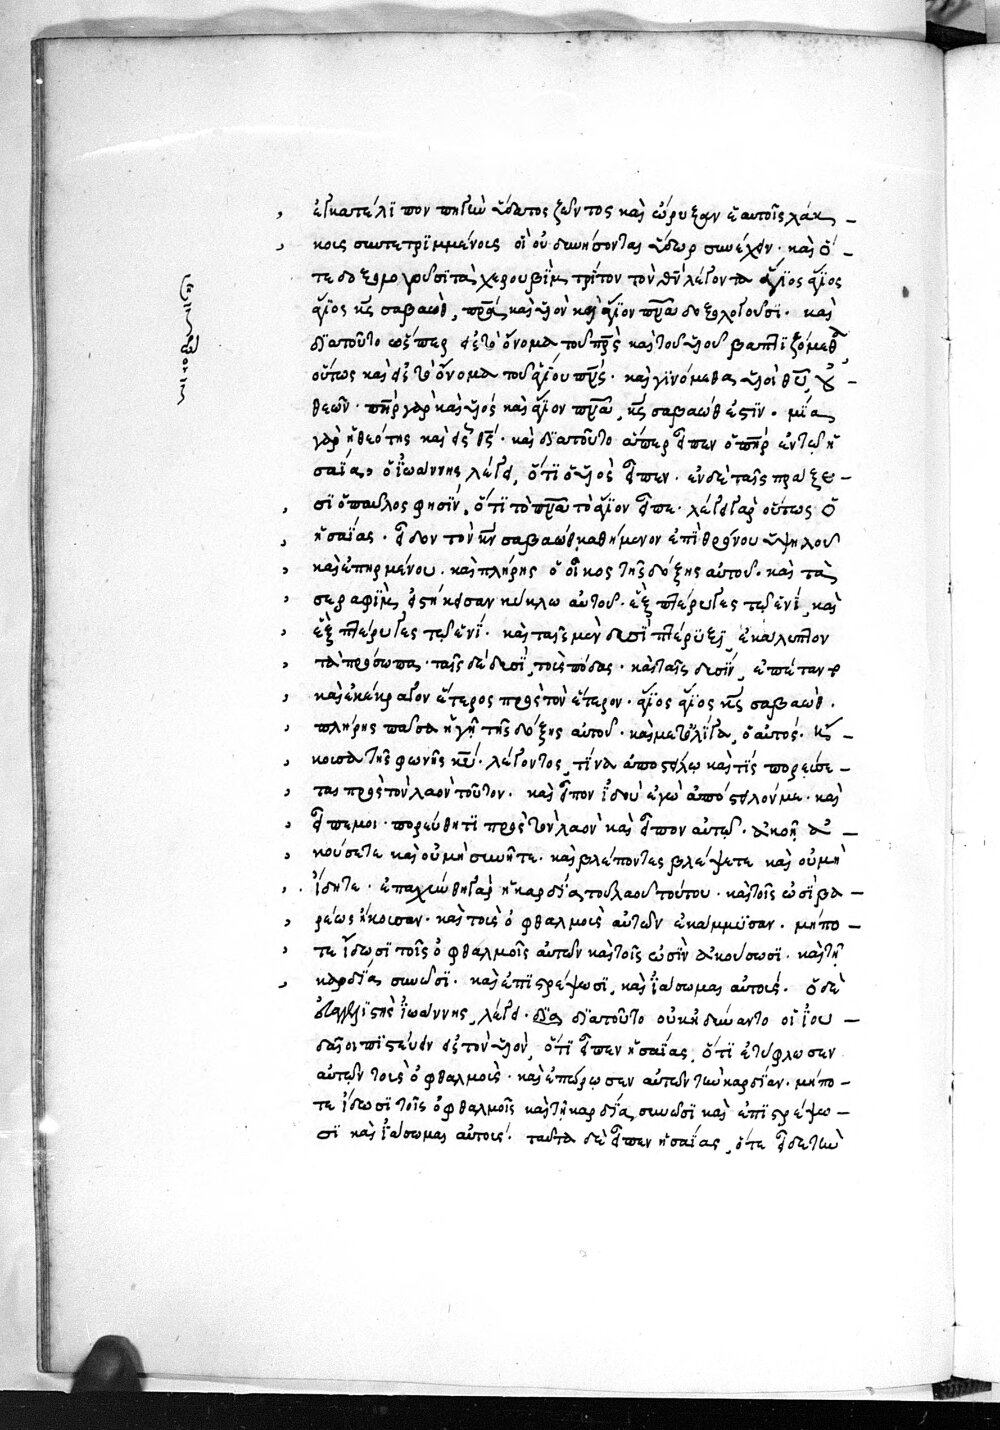 ἐγκατέλιπον πηγὴν ὕδατος ζῶντος καὶ ὤρυξαν ἑαυτοῖς λάκ
κοις συντετριμμένοις οἳ οὐ δυνήσονται ὕδωρ συνέχειν· καὶ ὅ
τε δοξολογοῦσι τὰ χερουβὶμ τρίτον τὸν θν̅ λέγοντα ἅγιος ἅγιος
ἅγιος κς̅ σαβαώθ, πρα̅ καὶ υἱὸν καὶ ἅγιον πνα̅ δοξολογοῦσι· καὶ
διατοῦτο ὥσπερ εἰς τὸ ὄνομα τοῦ πρς̅ καὶ τοῦ υἱοῦ βαπτιζόμεθα
οὕτως καὶ εἰς τὸ ὄνομα τοῦ ἁγίου πνς̅· καὶ γινόμεθα υἱοὶ θυ̅, οὐ
θεῶν· πηρ̅ γὰρ καὶ υἱὸς καὶ ἅγιον πνα̅, κς̅ σαβαώθ ἐστιν· μία
γὰρ ἡ θεότης καὶ εἷς θς̅· καὶ διατοῦτο ἅπερ εἶπεν ὁ πηρ̅ ἐν τῷ ἡ
σαΐα, ὁ ἰωάννης λέγει, ὅτι ὁ υἱὸς εἶπεν· ἐν δὲ ταῖς πράξε
σι ὁ παῦλος φησὶν, ὅτι τὸ πνα̅ τὸ ἅγιον εἶπε· λέγει γὰρ οὕτως ὁ
ἡσαΐας· εἶδον τὸν κν̅ σαβαὼθ καθήμενον ἐπὶ θρόνου ὑψηλοῦ
καὶ ἐπηρμένου· καὶ πλήρης ὁ οἶκος τῆς δόξης αὐτοῦ· καὶ τὰ
σεραφὶμ εἱστήκεισαν κύκλω αὐτοῦ· ἓξ πτέρυγες τῷ ἑνί, καὶ
ἓξ πτέρυγες τῷ ἑνί· καὶ ταῖς μὲν δυσὶ πτέρυξι, ἐκάλυπτον
τὰ πρόσωπα· ταῖς δὲ δυσί, τοὺς πόδας· καὶ ταῖς δυσὶν, ἐπέταντο
καὶ ἐκέκραγον ἕτερος πρὸς τὸν ἕτερον· ἅγιος ἅγιος κς̅ σαβαώθ·
πλήρης πᾶσα ἡ γῆ τῆς δόξης αὐτοῦ· καὶ μετολίγα, ὁ αὐτός· ἤ
κουσα τῆς φωνῆς κυ̅ λέγοντος, τίνα ἀποστείλω καὶ τίς πορεύσε
ται πρὸς τὸν λαὸν τοῦτον· καὶ εἶπον ἰδοὺ ἐγὼ ἀπόστειλόν με· καὶ
εἶπέ μοι· πορεύθητι πρὸς τὸν λαὸν καὶ εἶπον αὐτῷ· ἀκοῇ ἀ
κούσετε καὶ οὐ μὴ συνῆτε· καὶ βλέποντες βλέψετε καὶ οὐ μὴ
ἴδητε· ἐπαχύνθη γὰρ ἡ καρδία τοῦ λαοῦ τούτου· καὶ τοῖς ὠσὶ βα
ρέως ἤκουσαν· καὶ τοὺς ὀφθαλμοὺς αὐτῶν ἐκάμμυσαν· μήπο
τε ἴδωσι τοῖς ὀφθαλμοῖς αὐτῶν καὶ τοῖς ὠσὶν ἀκούσωσι· καὶ τῇ
καρδία συνῶσι· καὶ ἐπιστρέψωσι, καὶ ἰάσωμαι αὐτούς· ὁ δὲ
εὐαγγελιστὴς ἰωάννης, λέγει· διατοῦτο οὐκ ἠδύναντο οἱ ἰου
δαῖοι πιστεύειν εἰς τὸν υἱὸν, ὅτι εἶπεν ἡσαΐας, ὅτι ἐτύφλωσεν
αὐτῶν τοὺς ὀφθαλμοὺς· καὶ ἐπώρωσεν αὐτῶν τὴν καρδίαν· μήπο
τε ἴδωσι τοῖς ὀφθαλμοῖς καὶ τῇ καρδία συνῶσι καὶ ἐπιστρέψω
σι καὶ ἰάσωμαι αὐτούς· ταῦτα δὲ εἶπεν ἡσαΐας, ὅτε εἶδε τὴν